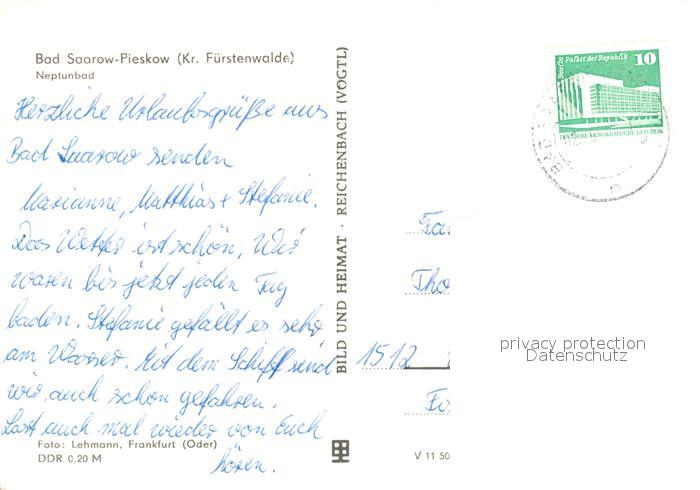 Bad Saarow-Pieskow (Kr. Fürstenwalde)
Neptunbad
Herzliche Urlaubsgrüße aus
Bad Saarow senden
Marianne, Matthias + Stefanie.
Das Wetter ist schön, Wir
waren bis jetzt jeden Tag
baden. Stefanie gefällt es sehr
am Wasser. Mit dem Schiff sind
wir auch schon gefahren.
Last auch mal wieder von Euch
hören.
Foto: Lehmann, Frankfurt (Oder)
DDR 0,20 M
BILD UND HEIMAT · REICHENBACH (VOGTL)
V 11 50
Berlin Palast der Republik 10
DEUTSCHE DEMOKRATISCHE REPUBLIK
Fam
Tho
1512
privacy protection
Datenschutz